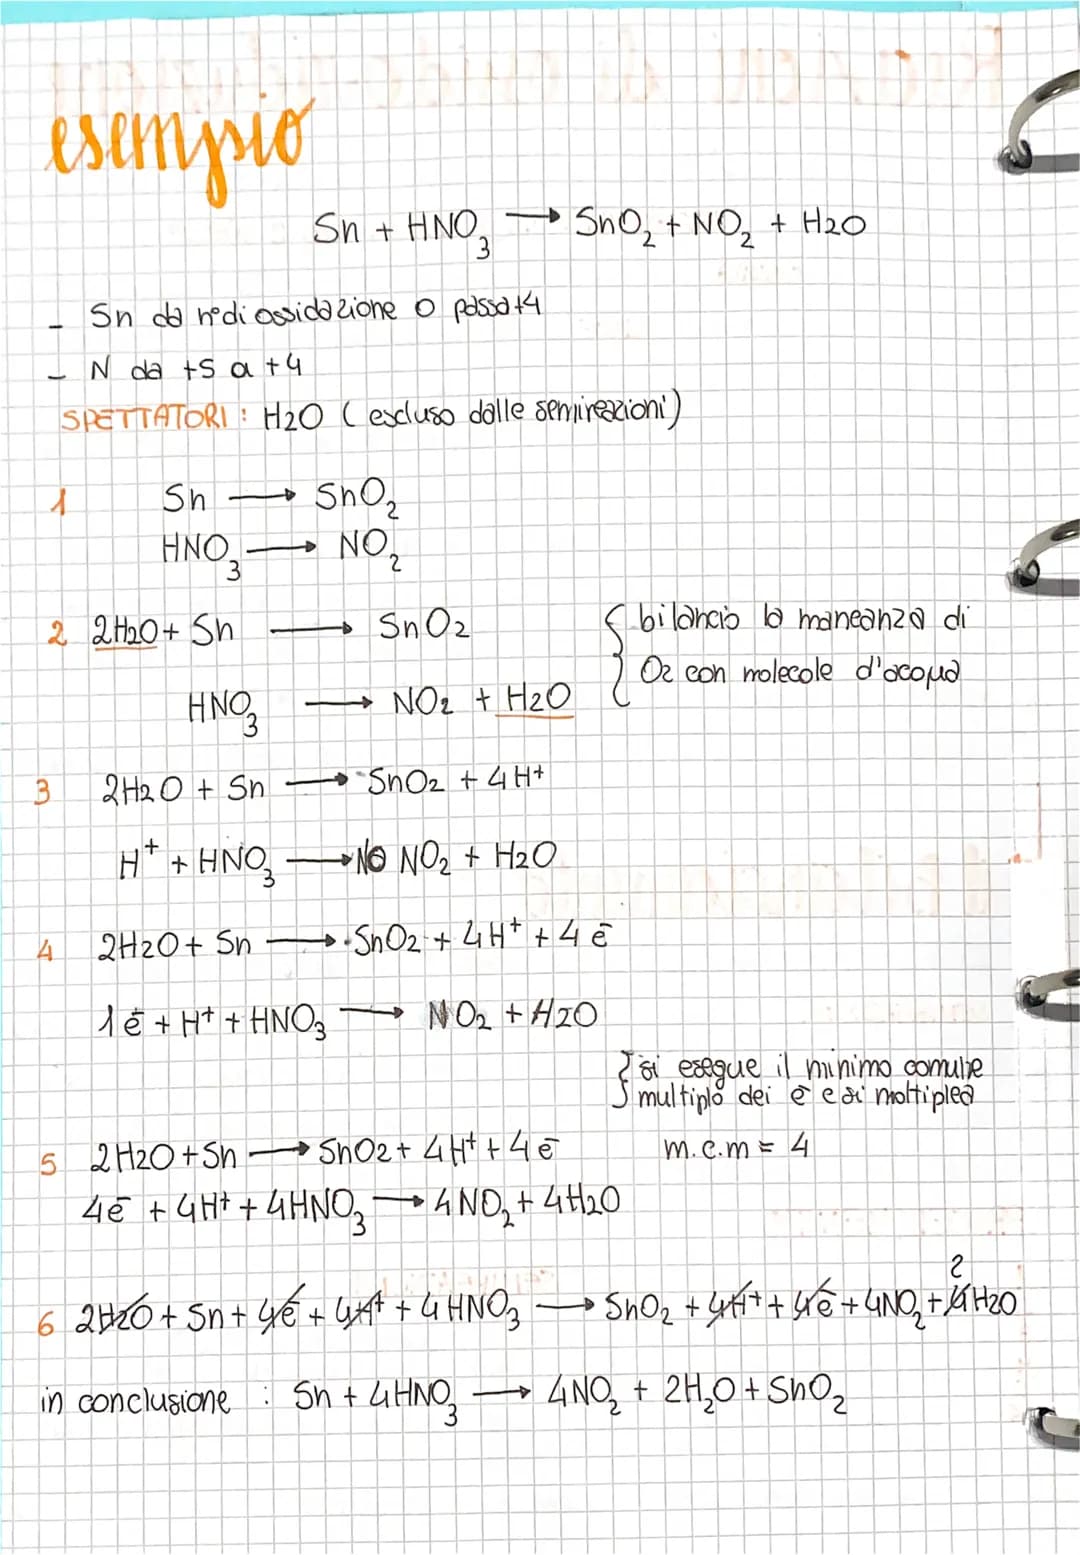 esempio
Sn + HNO₃ → SnO₂ + NO₂ + H2O
- Sn da n° di ossidazione 0 passa +4
- N da +5 a +4
SPETTATORI: H2O (escluso dalle semireazioni)
1 Sn → SnO₂
HNO₃ → NO₂
2 2H2O + Sn → SnO2
{ bilancio la mancanza di
O2 con molecole d'acqua
HNO₃ → NO2 + H2O
3 2H2O + Sn → SnO2 + 4H+
H⁺ + HNO₃ → NO NO2 + H2O
4 2H2O + Sn → SnO2 + 4H⁺ + 4 ē
1ē + H+ + HNO3 → NO2 + H2O
} si esegue il minimo comune
multiplo dei ē e si moltiplica
5 2H2O + Sn → SnO2 + 4H+ + 4ē m.c.m = 4
4ē + 4H+ + 4HNO₃ → 4NO₂ + 4H2O
2
6 2H2O + Sn + 4ē + 4H+ + 4HNO3 → SnO₂ + 4H+ + 4ē + 4NO₂ + 4H2O
in conclusione : Sn + 4HNO₃ → 4NO₂ + 2H₂O + SnO₂